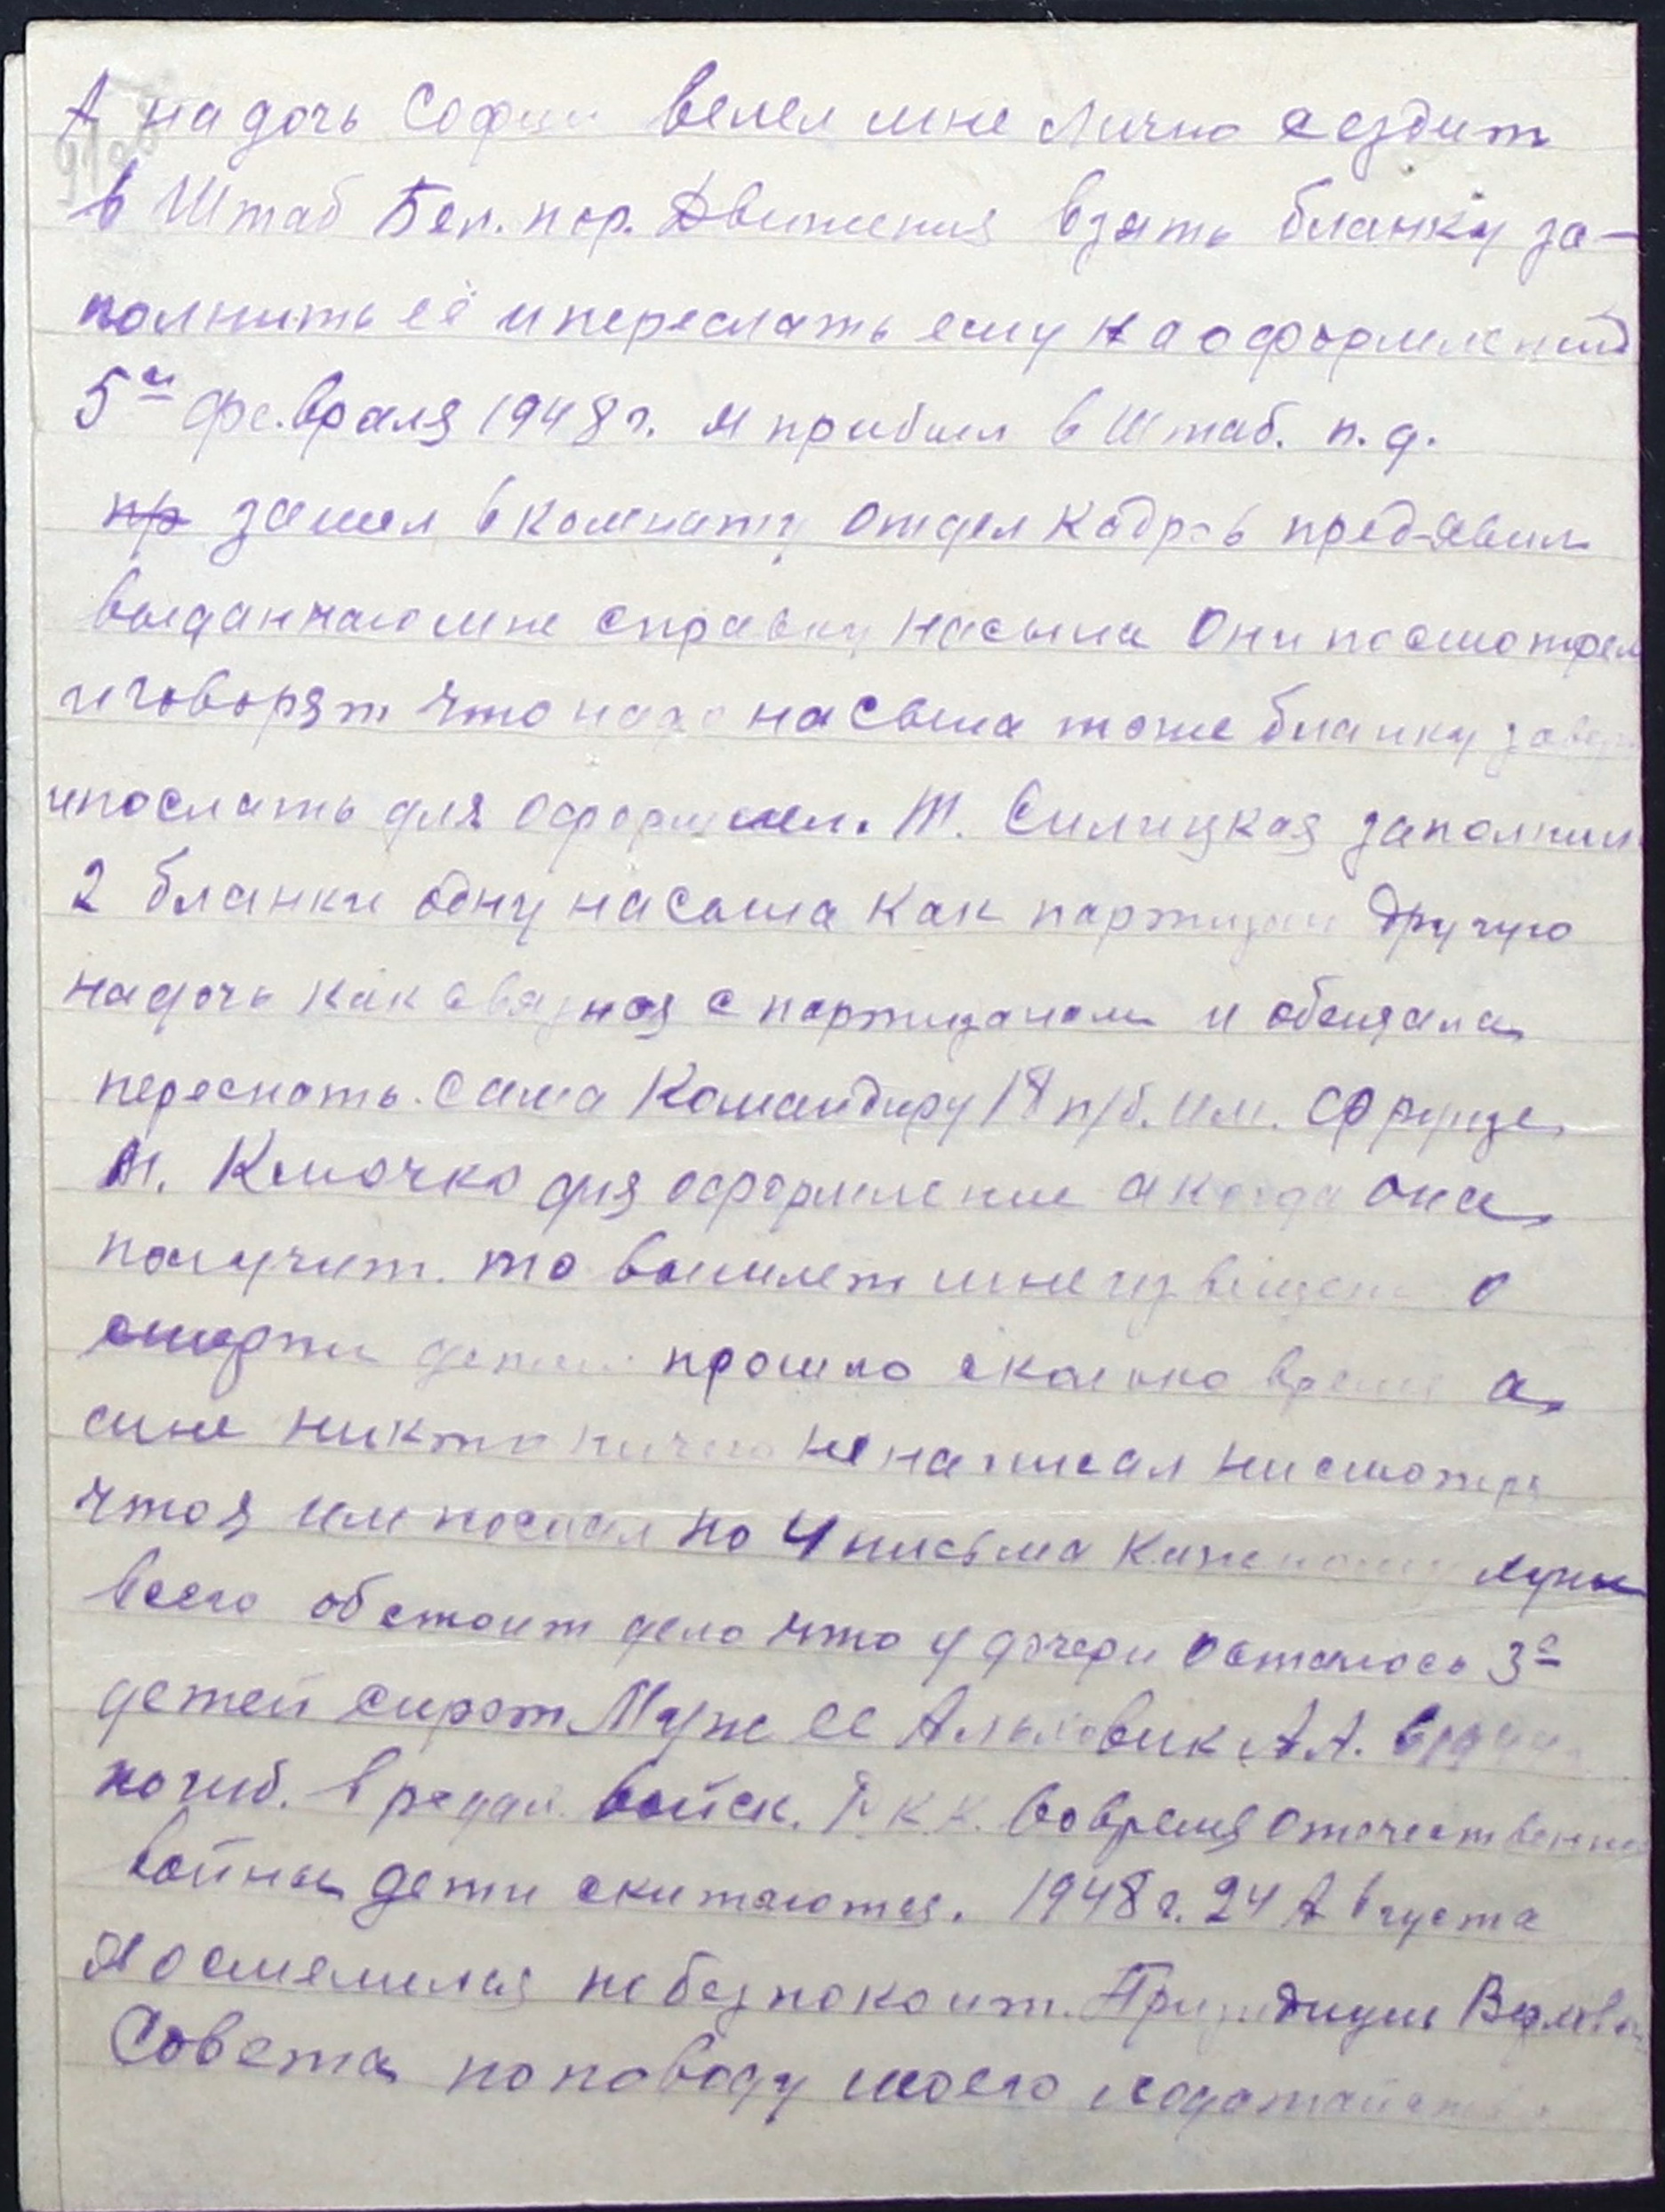 А на дочь Софию велел мне Лично сездит
в Штаб Бел. пар. Движения взять бланку за-
полнить её и переслать ему на оформлений
5го февраля 1948 г. Я прибыл в Штаб. п. д.
пр зашел в комнату отдел Кадров пред-явил
выданчаю мне справку на сына Они посмотрел
и говорят что надо на сына тоже бланку
и послать для оформлен. Т. Силицкая заполнил
2 бланки одну на сына как партизан другую
на дочь как связная с партизаном и обещала
переслать сама Командиру 18 п/б. им. Фрунзе
т. Клочко для оформление а когда она
получит. то вышлет мне извещен о
смерти детей прошло сколько время а
мне никто ничего не написал нисмотря
что я им послал по 4 письма Каждому
всего обстоит дело что у дочери осталось 3е
детей сирот Муж ее Альховик А А. в
погиб. в рядах войск. Р. К. К. во время Отечественной
войны дети скитаются. 1948 г. 24 Августа
Я осмелился побезпокоит. Призидиум Верховн
Совета по поводу моего ходатайства